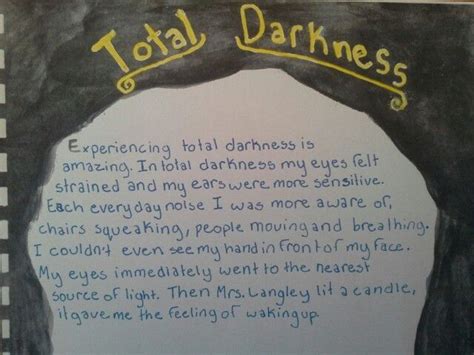 Total Darkness
Experiencing total darkness is
amazing. In total darkness my eyes felt
strained and my ears were more sensitive.
Each everyday noise I was more aware of,
chairs squeaking, people moving and breathing.
I couldn't even see my hand in front of my face.
My eyes immediately went to the nearest
source of light. Then Mrs. Langley lit a candle,
it gave me the feeling of waking up.